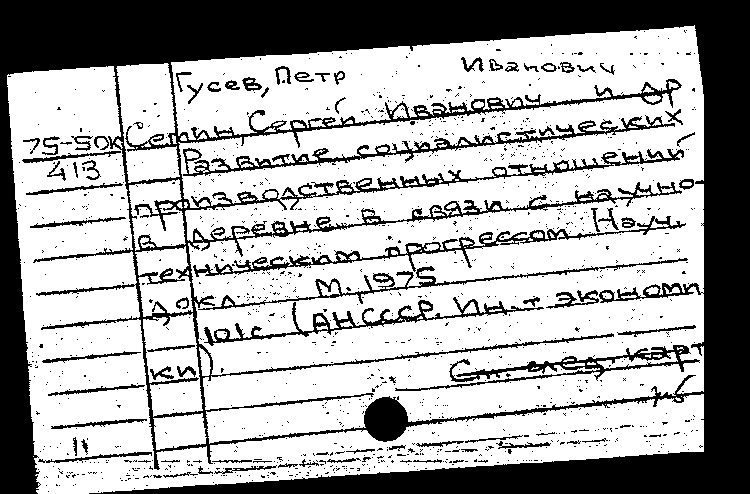 Гусев, Петр Иванович
75-50к Сетин, Сергей Иванович и др
413 Развитие социалистических
производственных отношений
в деревне в связи с научно-
техническим прогрессом. Науч.
докл М., 1975
101с. (АН СССР. Ин-т экономи
ки).
См. след. карт
11